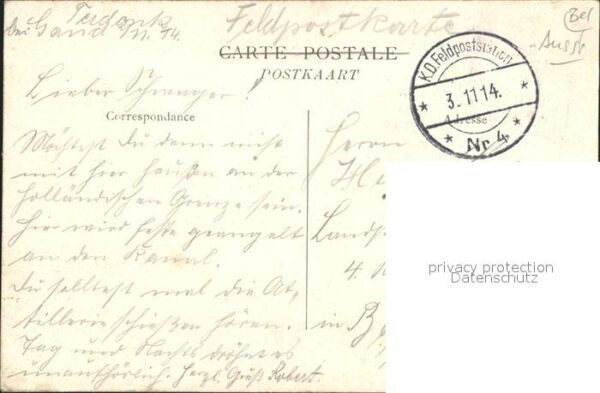 Terdonk
bei Gand 1/11.14.
Feldpostkarte
Bel
Ausst
CARTE POSTALE
POSTKAART
K.D.Feldpoststation
3.11.14.
Nr 4
Lieber Schwager!
Correspondance
Adresse
Möchtest du denn nicht
mit hier haußen an der
holländischen Grenze sein.
Hier wird feste geangelt
an den Kanal.
Du solltest mal die At,
tillerie schießen hören.
Tag und Nachts dröhnt es
unauthörlich. Herzl. Gruß Robert.
Herrn
He
Lands
4.
in B
privacy protection
Datenschutz